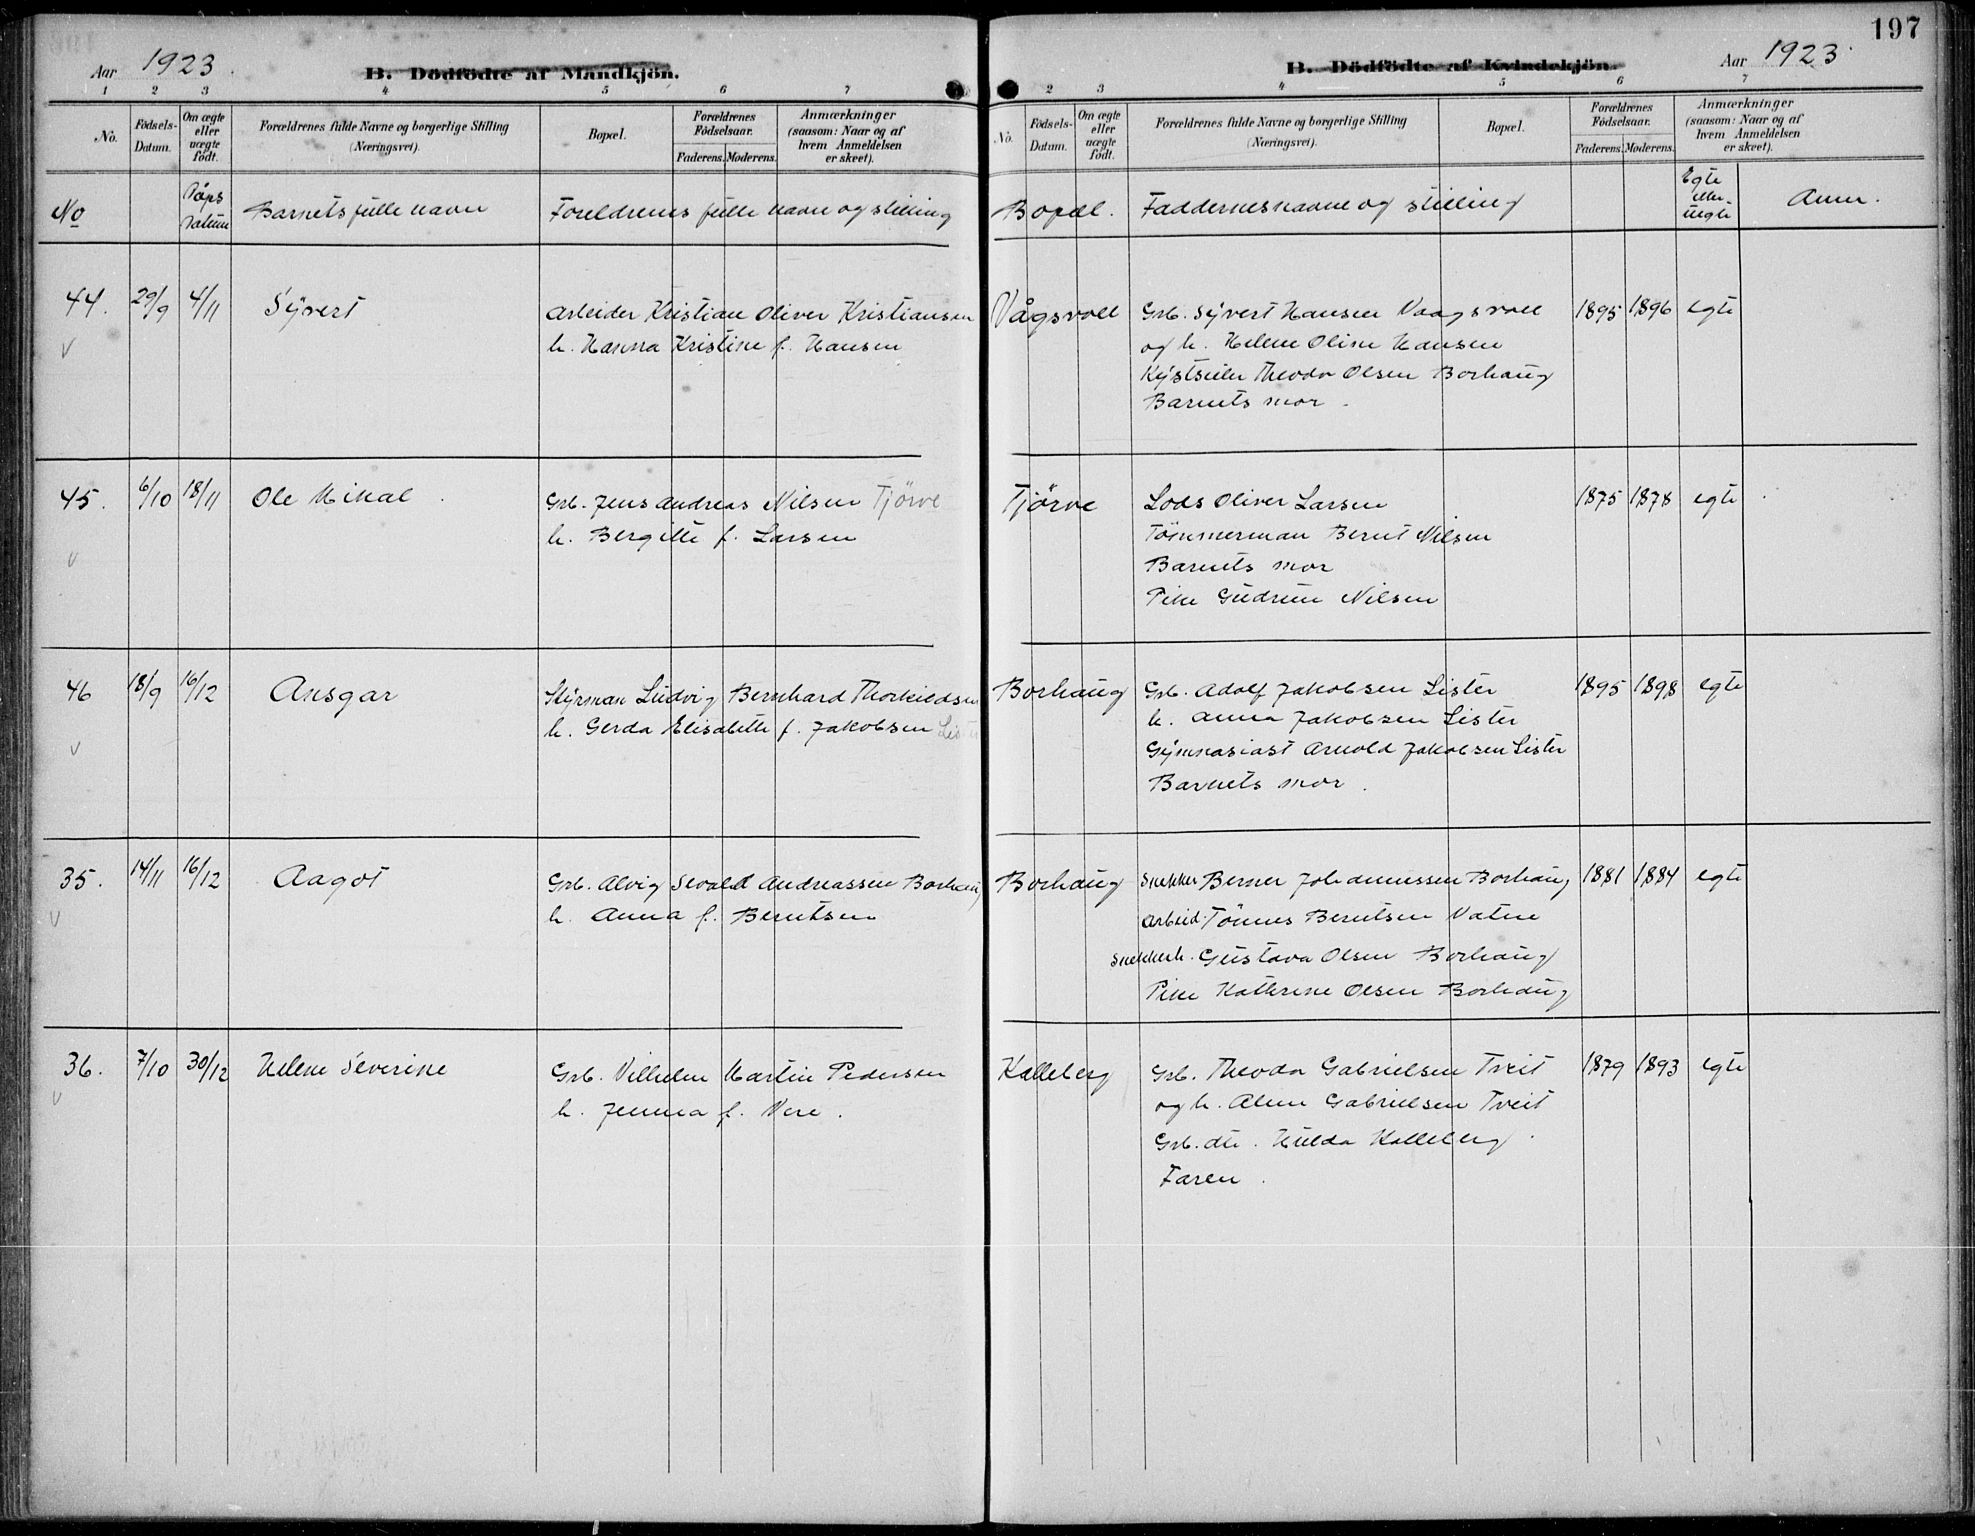 197
Aar 1923.
B. Dödfödte af Mandkjön.
1 2 3 4 5 6 7
No.
Födsels-Datum.
Om ægte eller uægte födt.
Forældrenes fulde Navne og borgerlige Stilling (Næringsvei).
Bopæl.
Forældrenes Födselsaar.
Faderens. Moderens.
Anmærkninger (saasom: Naar og af hvem Anmeldelsen er skeet).
No
Döps Datum
Barnets fulle navn
Foreldrenes fulle navn og stilling
44. 29/9 4/11 Syvert
Arbeider Kristian Oliver Kristiansen
h. Hanna Kristine f. Hansen
45. 6/10 18/11 Ole Mikal
Grb. Jens Andreas Nilsen Tjörve
h. Bergitte f. Larsen
46 18/9 16/12 Ansgar
Styrman Ludvig Bernhard Thorkildsen
h. Gerda Elisabette f. Jakobsen Lister
35. 14/11 16/12 Aagot
Grb. Alvig Sevald Andreassen Borhaug
h. Anna f. Berntsen
36. 7/10 30/12 Helene Severine
Grb. Vilhelm Martin Pedersen
h. Jenma f. Vere.
Aar 1923.
B. Dödfödte af Kvindekjön.
2 3 4 5 6 7
No.
Födsels-Datum.
Om ægte eller uægte födt.
Forældrenes fulde Navne og borgerlige Stilling (Næringsvei).
Bopæl.
Forældrenes Födselsaar.
Faderens. Moderens.
Anmærkninger (saasom: Naar og af hvem Anmeldelsen er skeet).
Bopæl.
Faddernes navne og stilling
Egte eller uegte
Anm.
Vågsvoll Grb. Syvert Hansen Vaagsvoll 1895 1896 egte
og h. Helene Oline Hansen
Kystseiler Theodor Olsen Borhaug
Barnets mor.
Tjörve Lods Oliver Larsen 1875 1878 egte
Tömmerman Bernt Nilsen
Barnets mor
Pike Gudrun Nilsen
Borhaug Grb. Adolf Jakobsen Lister 1895 1898 egte
h. Anna Jakobsen Lister
Gymnasiast Arnold Jakobsen Lister
Barnets mor.
Borhaug Snekker Berner Johannessen Borhaug 1881 1884 egte
Arbeid. Tönnes Berntsen Vatne
Snekkerh. Gustava Olsen Borhaug
Pike Kathrine Olsen Borhaug
Kalleberg Grb. Theodor Gabrielsen Tveit 1879 1893 egte
og h. Aline Gabrielsen Tveit
Grb. dtr. Hulda Kalleberg.
Faren.